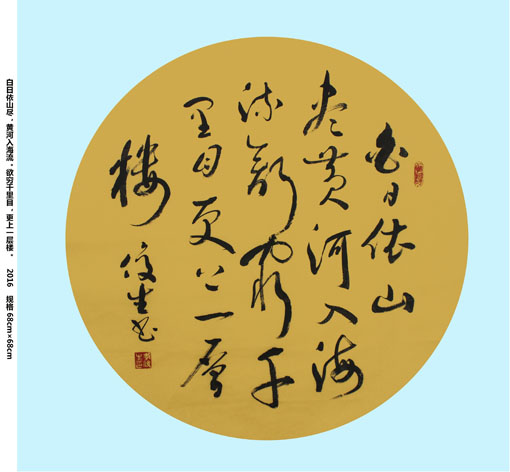 白日依山
尽黄河入海
流欲穷千
里目更上一層
楼
俊生书
白日依山尽，黄河入海流。欲穷千里目，更上一层楼。 2016 规格 68cm×68cm